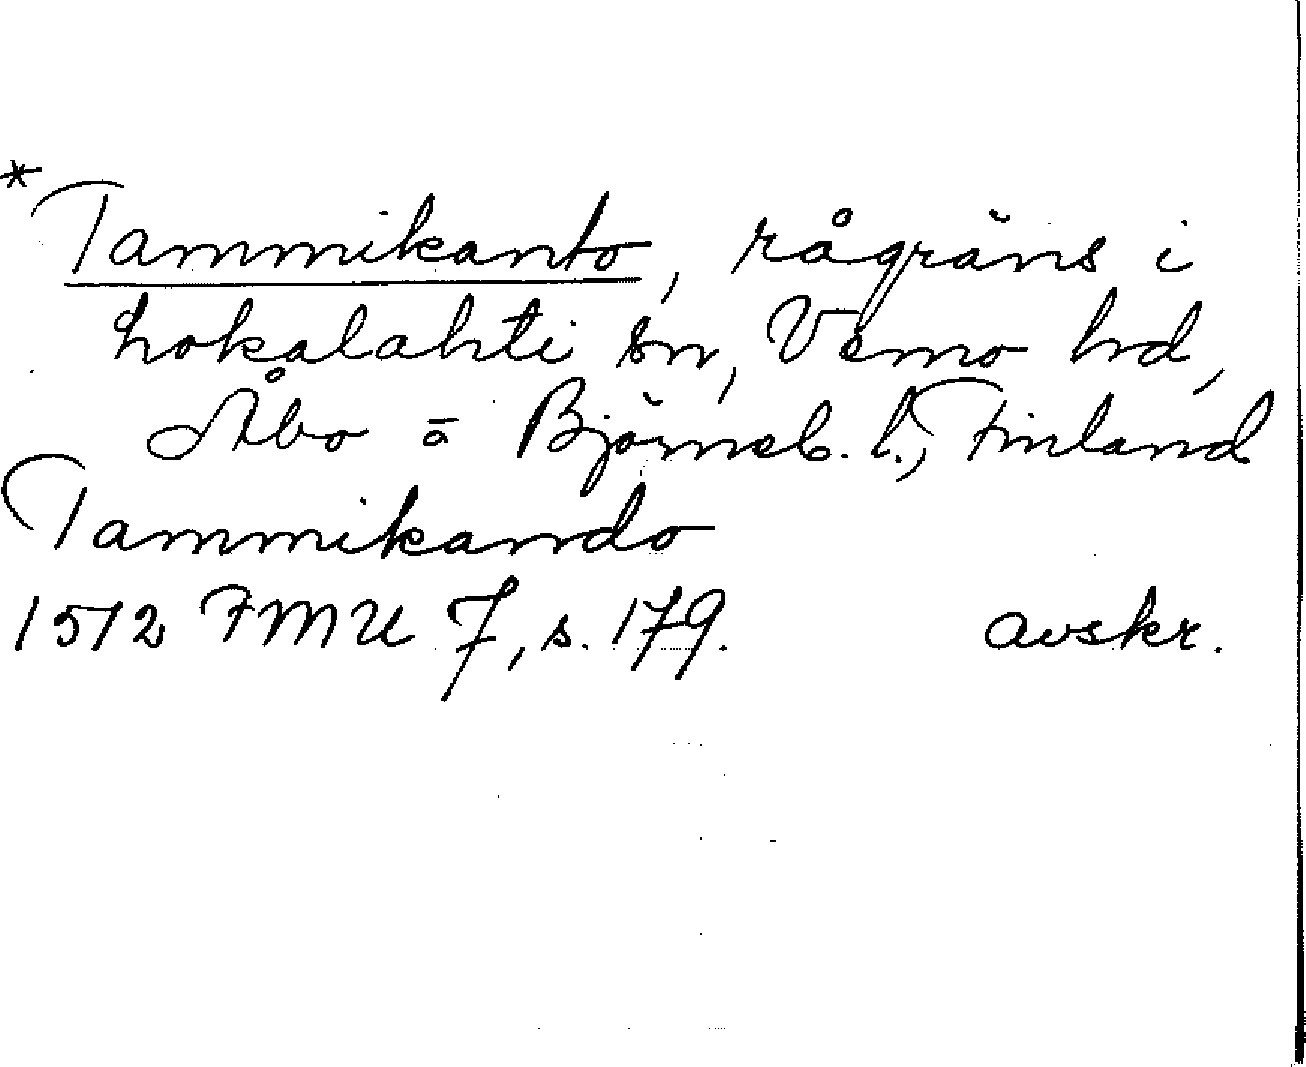 *Tammikanto, rågräns i
Lokalahti sn, Vemo hd,
Åbo o Björneb. l., Finland
Tammikando
1512 FMU 7, s. 179. avskr.